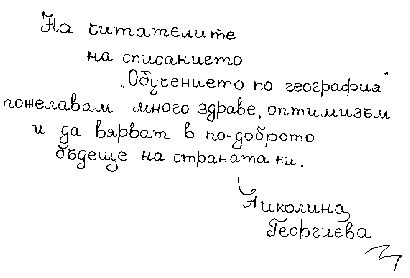 На читателите
на списанието
„Обучението по география"
пожелавам много здраве, оптимизъм
и да вярват в по-доброто
бъдеще на страната ни.
Николина
Георгиева